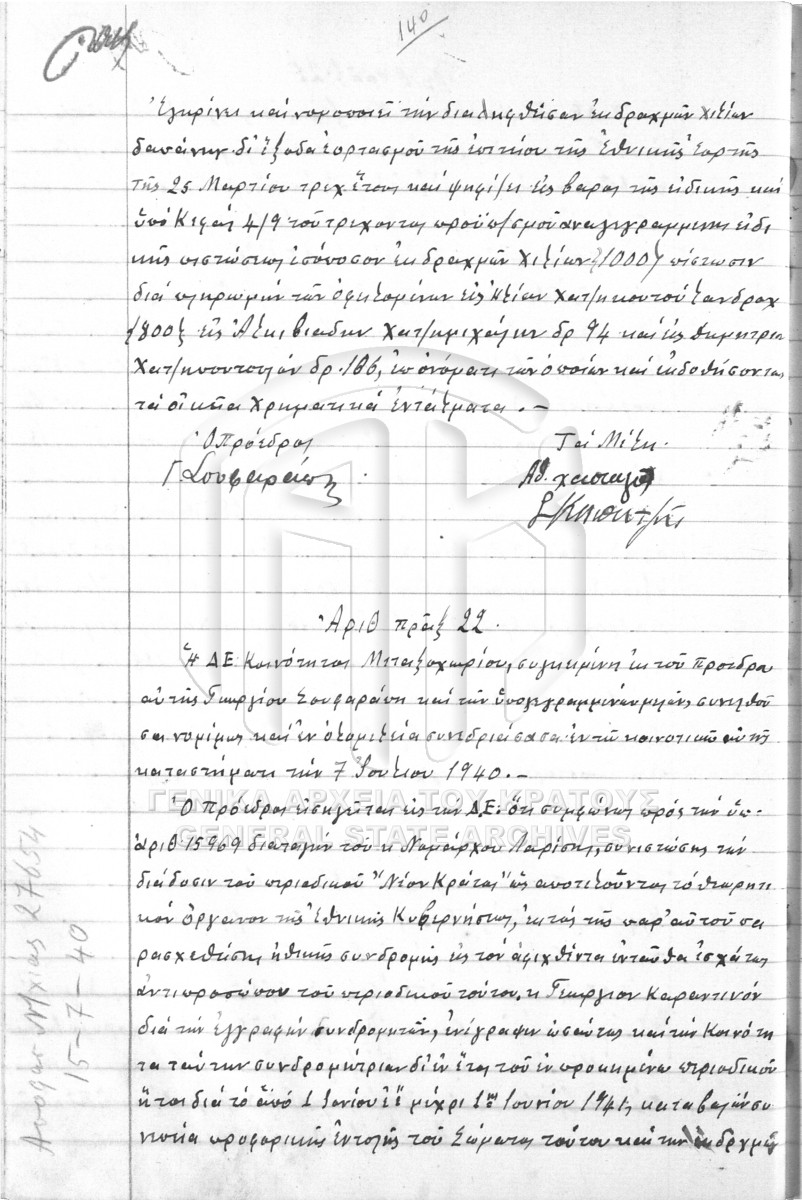 140
Ἐγκρίνει καὶ νομοποιεῖ τὴν διαληφθεῖσαν ἐκ δραχμῶν χιλίων
δαπάνην δι' ἔξοδα ἑορτασμοῦ τῆς ἐπετείου τῆς Ἐθνικῆς Ἑορτῆς
τῆς 25 Μαρτίου τρέχ ἔτους καὶ ψηφίζει εἰς βάρος τῆς εἰδικῆς καὶ
ὑπὸ Κεφάλ 4/9 τοῦ τρέχοντος προϋπ/σμοῦ ἀναγεγραμμένης εἰδι
κῆς πιστώσεως ἰσόποσον ἐκ δραχμῶν χιλίων (1000) πίστωσιν
διὰ πληρωμὴν τῶν ὀφειλομένων εἰς Χατ/
εἰς Ἀλκιβιάδην Χατ/κμιχάλην δρ 94 καὶ εἰς Δημήτριον
δρ. 166, ἐπ' ὀνόματι τῶν ὁποίων καὶ ἐκδοθήσονται
τὰ οἰκεῖα χρηματικὰ ἐντάλματα. –
Ὁ Πρόεδρος Τὰ Μέλη.
Γ Σουφαράπης
Ἀριθ πράξ 22.
Ἡ ΔΕ Κοινότητος Μεταξοχωρίου, συγκειμένη ἐκ τοῦ Προέδρου
αὐτῆς Γεωργίου Σουφαράπη καὶ τῶν ὑπογεγραμμένων μελῶν συνελθοῦ
σα νομίμως καὶ ἐν ὁλομελείᾳ συνεδριάσασα ἐν τῷ κοινοτικῷ αὐτῆς
καταστήματι τὴν 7 Ἰουλίου 1940. –
ΓΕΝΙΚΑ ΑΡΧΕΙΑ ΤΟΥ ΚΡΑΤΟΥΣ
Ὁ Πρόεδρος εἰσηγεῖται εἰς τὴν Δ.Ε. ὅτι συμφώνως πρὸς τὴν ὑπ'
GENERAL STATE ARCHIVES
ἀριθ 15969 διαταγὴν τοῦ κ Νομάρχου Λαρίσης, συνιστώσης τὴν
διάδοσιν τοῦ περιοδικοῦ "Νέον Κράτος" ὡς ἀποτελοῦντος τὸ θεωρητι
κὸν ὄργανον τῆς Ἐθνικῆς Κυβερνήσεως, ἐκτὸς τῆς παρ' αὐτοῦ πα
ρασχεθείσης ἠθικῆς συνδρομῆς εἰς τὸν ἀφιχθέντα ἐνταῦθα ἐσχάτως
ἀντιπρόσωπον τοῦ περιοδικοῦ τούτου, κ Γεώργιον Καραντινὸν
διὰ τὴν ἐγγραφὴν συνδρομητῶν, ἐνέγραψεν ὡσαύτως καὶ τὴν Κοινότη
τα ταύτην συνδρομήτριαν δι' ἓν ἔτος τοῦ ἐν προκειμένῳ περιοδικοῦ
ἤτοι διὰ τὸ ἀπὸ 1 Ἰουνίου ἐ.ἔ. μέχρι 1ης Ἰουνίου 1941, καταβαλὼν συ
νεπείᾳ προφορικῆς ἐντολῆς τοῦ Σώματος τούτου καὶ τὴν ἐκ δραχμῶν
Ἀποφασ Νμχίας 27654
15-7-40